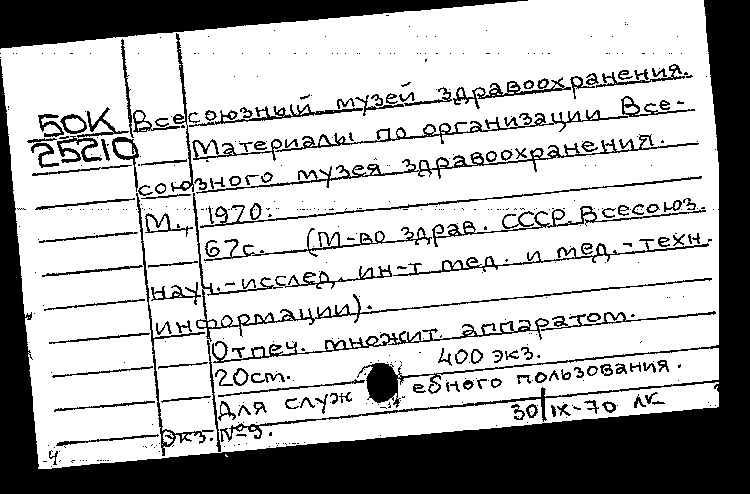 БОК Всесоюзный музей здравоохранения.
25210 Материалы по организации Все-
союзного музея здравоохранения.
М., 1970.
67с. (М-во здрав. СССР. Всесоюз.
науч.-исслед. ин-т мед. и мед.-техн.
информации).
Отпеч. множит. аппаратом.
20cm. 400 экз.
Для служебного пользования.
экз. №9. 30/IX-70 ЛК